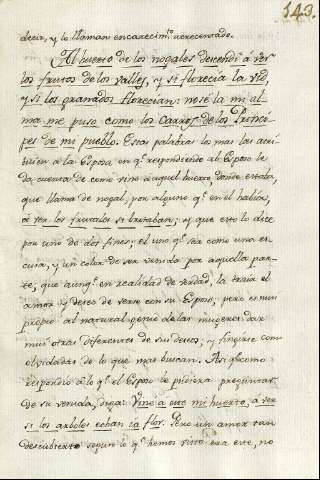 143.
decir, y lo llaman encarecim.to acrecentado.
Al huerto de los nogales descendi a ver
los frutos de los valles, y si florecia la vid,
y si los granados florecian: no sè la mi al-
ma me puso como los carros de los Princi-
pes de mi pueblo. Estas palabras los mas las atri-
buien a la Esposa en q.e respondiendo al Esposo le
da cuenta de como vino a aquel huerto, donde estaba,
que llama de nogal, por alguno q.e en el habia,
a ver los frutales si brotaban; y que esto lo dice
por uno de dos fines; el uno q.e sea como una es-
cusa, y un color de ser venida por aquella par-
te, que aunq.e en realidad de verdad, la traia el
amor y deseo de verse con su Esposo, pero es muy
propio al natural genio de las mugeres dar
muestras diferentes de sus deseos; y fingirse como
olvidadas de lo que mas buscan. Asi q.e como
respondio a lo q.e el Esposo le pudiera preguntar
de su venida, diga: Vine a este mi huerto, a ver
si los arboles echan la flor. Pero un amor tan
descubierto segun lo q.e hemos visto era este, no